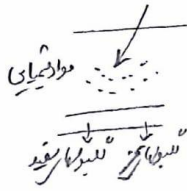 مواد شیمیایی
گلبولهای قرمز گلبولهای سفید